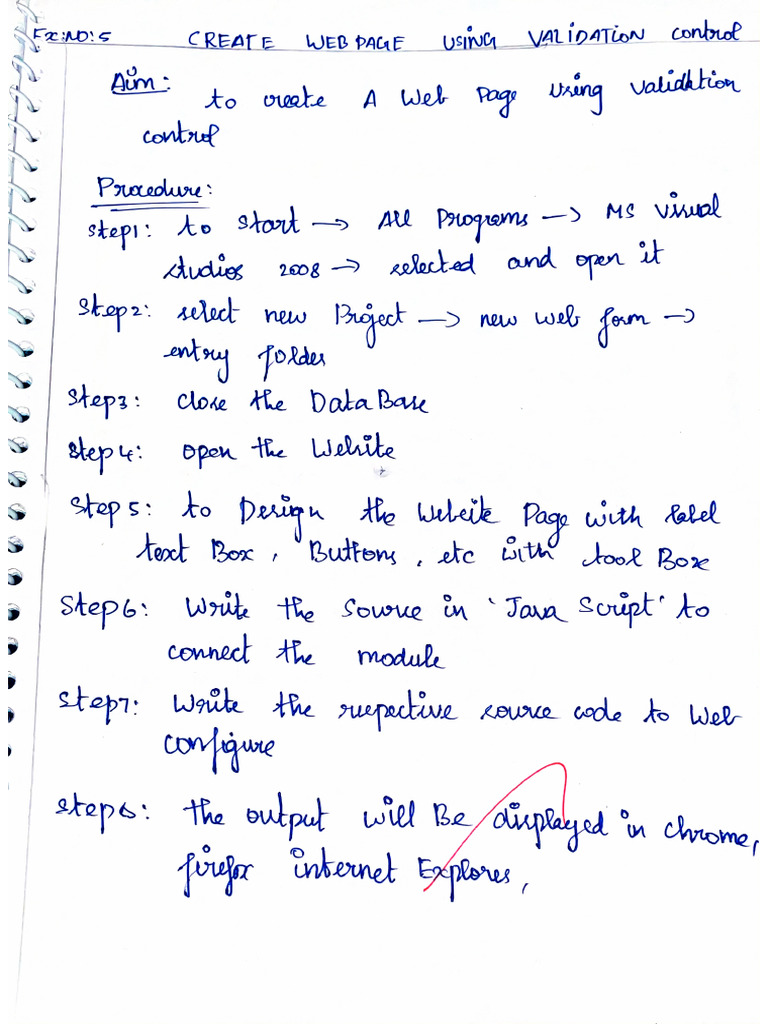 Ex:NO:5 CREATE WEB PAGE USING VALIDATION control
Aim: to create A Web Page Using validation
control
Procedure:
Step1: to start → All Programs → MS visual
studios 2008 → selected and open it
Step2: select new Project → new web form →
entry folder
Step3: close the DataBase
Step4: open the Website
Step5: to Design the Website Page with label
text Box, Buttons, etc with tool Box
Step6: Write the Source in 'Java Script' to
connect the module
Step7: Write the ruepective source code to Web
configure
Step6: the output will Be displayed in chrome,
firefox internet Explores,